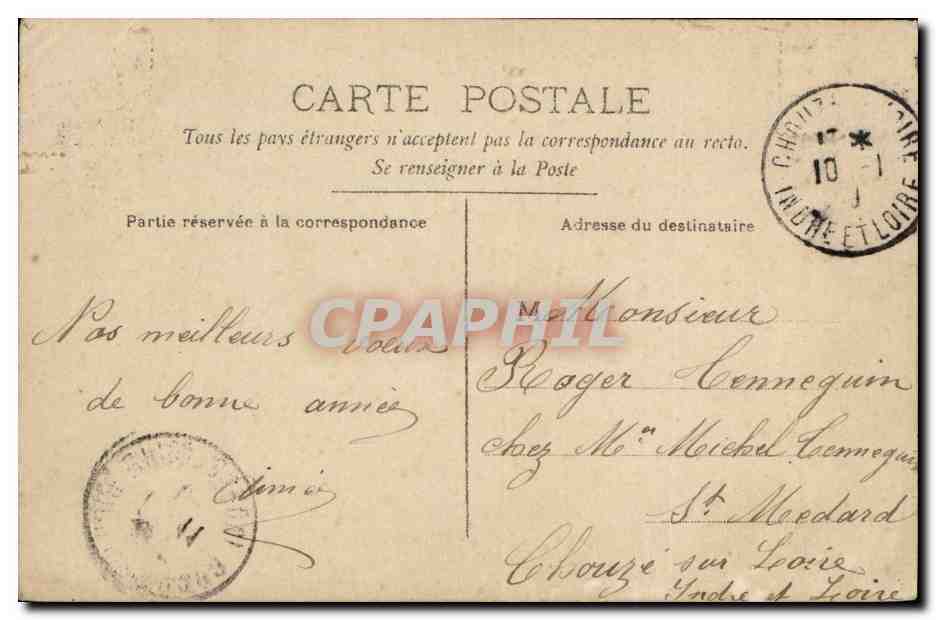 CARTE POSTALE
Tous les pays étrangers n'acceptent pas la correspondance au recto.
Se renseigner à la Poste
Partie réservée à la correspondance
Adresse du destinataire
CHOUZ LOIRE
10 - 1
INDRE ET LOIRE
Nos meilleurs voeux
de bonne année
Aimée
M Monsieur
Roger Cennequin
chez Mr Michel Cennequin
St Medard
Chouzé sur Loire
Indre et Loire
11
CPAPHIL